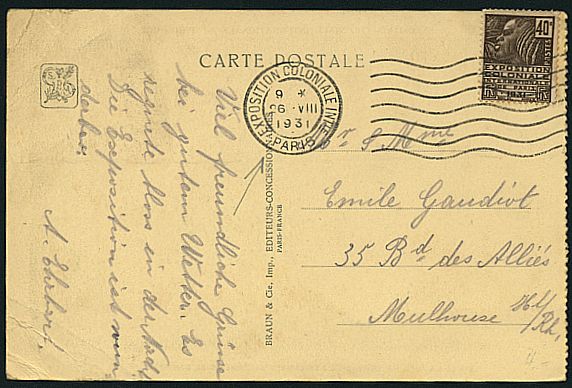 CARTE POSTALE
EXPOSITION COLONIALE INTLE
9 *
26 - VIII
1931
PARIS
40c
POSTES
EXPOSITION
COLONIALE
INTERNATIONALE
PARIS
1931
Viel freundliche Grüsse
bei gutem Wetter. Es
regnete bloss in der Nacht
Die Exposition ist wun-
derbar.
A. Ehrhart.
BRAUN & Cie, Imp., EDITEURS-CONCESSIONNAIRES
PARIS-FRANCE
Mr & Mme
Emile Gaudiot
35 Bd des Alliés
Mulhouse Ht/Rh.